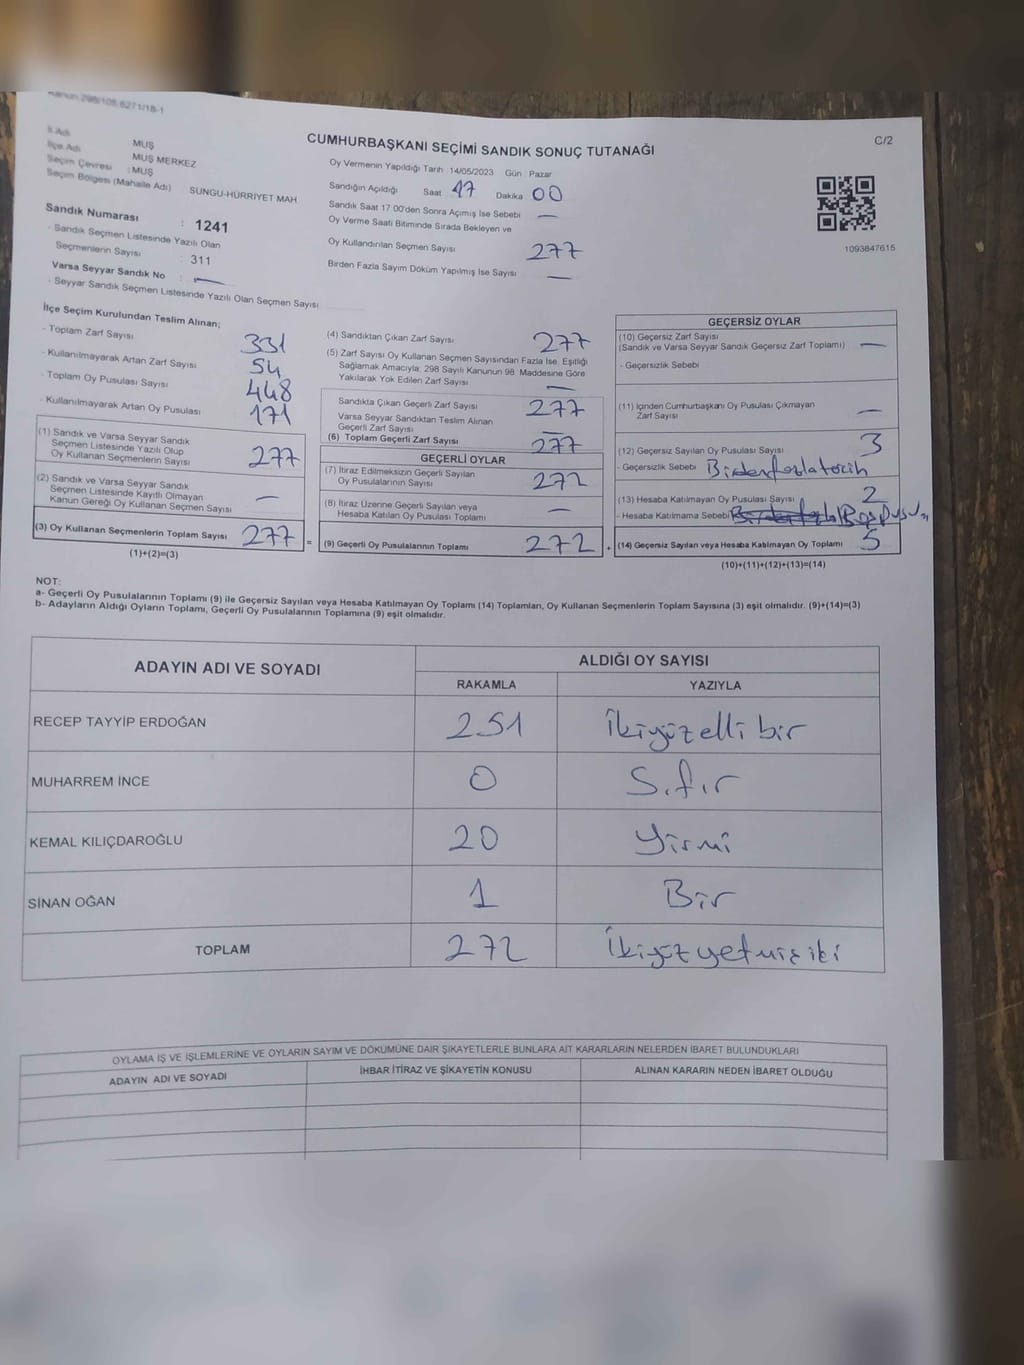 Kanun:298/105,6271/18-1
C/2
CUMHURBAŞKANI SEÇİMİ SANDIK SONUÇ TUTANAĞI
İl Adı MUŞ
İlçe Adı MUŞ MERKEZ
Seçim Çevresi : MUŞ
Seçim Bölgesi (Mahalle Adı) SUNGU-HÜRRİYET MAH
Sandık Numarası : 1241
- Sandık Seçmen Listesinde Yazılı Olan
Seçmenlerin Sayısı : 311
Varsa Seyyar Sandık No : —
- Seyyar Sandık Seçmen Listesinde Yazılı Olan Seçmen Sayısı
Oy Vermenin Yapıldığı Tarih 14/05/2023 Gün Pazar
Sandığın Açıldığı Saat 17 Dakika 00
Sandık Saat 17:00'den Sonra Açımış İse Sebebi —
Oy Verme Saati Bitiminde Sırada Bekleyen ve
Oy Kullandırılan Seçmen Sayısı 277
Birden Fazla Sayım Döküm Yapılmış İse Sayısı —
1093847615
İlçe Seçim Kurulundan Teslim Alınan;
- Toplam Zarf Sayısı 331
- Kullanılmayarak Artan Zarf Sayısı 54
- Toplam Oy Pusulası Sayısı 448
- Kullanılmayarak Artan Oy Pusulası 171
(1) Sandık ve Varsa Seyyar Sandık
Seçmen Listesinde Yazılı Olup
Oy Kullanan Seçmenlerin Sayısı 277
(2) Sandık ve Varsa Seyyar Sandık
Seçmen Listesinde Kayıtlı Olmayan
Kanun Gereği Oy Kullanan Seçmen Sayısı —
(3) Oy Kullanan Seçmenlerin Toplam Sayısı 277 =
(1)+(2)=(3)
(4) Sandıktan Çıkan Zarf Sayısı 277
(5) Zarf Sayısı Oy Kullanan Seçmen Sayısından Fazla İse, Eşitliği
Sağlamak Amacıyla, 298 Sayılı Kanunun 98. Maddesine Göre
Yakılarak Yok Edilen Zarf Sayısı —
Sandıkta Çıkan Geçerli Zarf Sayısı 277
Varsa Seyyar Sandıktan Teslim Alınan
Geçerli Zarf Sayısı —
(6) Toplam Geçerli Zarf Sayısı 277
GEÇERLİ OYLAR
(7) İtiraz Edilmeksizin Geçerli Sayılan
Oy Pusulalarının Sayısı 272
(8) İtiraz Üzerine Geçerli Sayılan veya
Hesaba Katılan Oy Pusulası Toplamı —
(9) Geçerli Oy Pusulalarının Toplamı 272 +
GEÇERSİZ OYLAR
(10) Geçersiz Zarf Sayısı
(Sandık ve Varsa Seyyar Sandık Geçersiz Zarf Toplamı) —
- Geçersizlik Sebebi
(11) İçinden Cumhurbaşkanı Oy Pusulası Çıkmayan
Zarf Sayısı —
(12) Geçersiz Sayılan Oy Pusulası Sayısı 3
- Geçersizlik Sebebi Birden fazla tercih
(13) Hesaba Katılmayan Oy Pusulası Sayısı 2
- Hesaba Katılmama Sebebi
(14) Geçersiz Sayılan veya Hesaba Katılmayan Oy Toplamı 5
(10)+(11)+(12)+(13)=(14)
NOT:
a- Geçerli Oy Pusulalarının Toplamı (9) ile Geçersiz Sayılan veya Hesaba Katılmayan Oy Toplamı (14) Toplamları, Oy Kullanan Seçmenlerin Toplam Sayısına (3) eşit olmalıdır. (9)+(14)=(3)
b- Adayların Aldığı Oyların Toplamı, Geçerli Oy Pusulalarının Toplamına (9) eşit olmalıdır.
ADAYIN ADI VE SOYADI ALDIĞI OY SAYISI
RAKAMLA YAZIYLA
RECEP TAYYİP ERDOĞAN 251 İkiyüzelli bir
MUHARREM İNCE 0 Sıfır
KEMAL KILIÇDAROĞLU 20 Yirmi
SİNAN OĞAN 1 Bir
TOPLAM 272 İkiyüz yetmiş iki
OYLAMA İŞ VE İŞLEMLERİNE VE OYLARIN SAYIM VE DÖKÜMÜNE DAİR ŞİKAYETLERLE BUNLARA AİT KARARLARIN NELERDEN İBARET BULUNDUKLARI
ADAYIN ADI VE SOYADI İHBAR İTİRAZ VE ŞİKAYETİN KONUSU ALINAN KARARIN NEDEN İBARET OLDUĞU